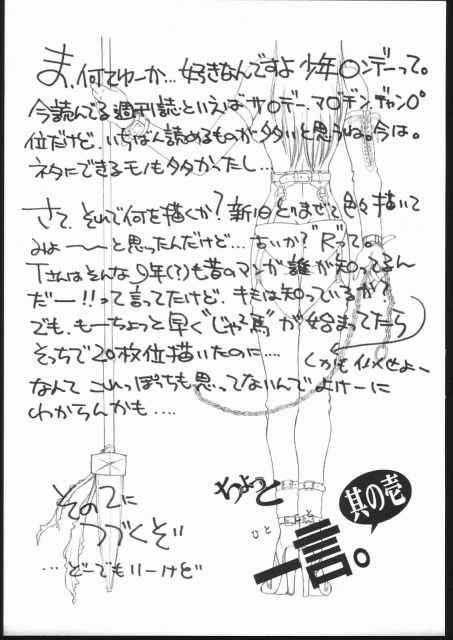 ま、何てゆーか…好きなんですよ少年〇ンデーって。
今読んでる週刊誌といえばサ〇デー、マ〇ヂン、ヂャン〇
位だけど、いちばん読めるものが多いと思うね。今は。
ネタにできるモノも多かったし…
さて、それで何を描くか?新旧どまぜて色々描いて
みよ〜〜と思ったんだけど…古いか?"R"って。
Tさんはそんな9年(?)も昔のマンガ誰が知ってるん
だー!!って言ってたけど、キミは知っているか?
でも、もーちょっと早く"じゃじゃ馬"が始まってたら
そっちで20枚位描いたのに….
しかも仏メせよー
なんて これっぽっちも思ってないんでよけーに
わからんかも….
その2に
つづくぞ
…どーでもいーけど
ちょっと
ひと こと
一言。
其の壱